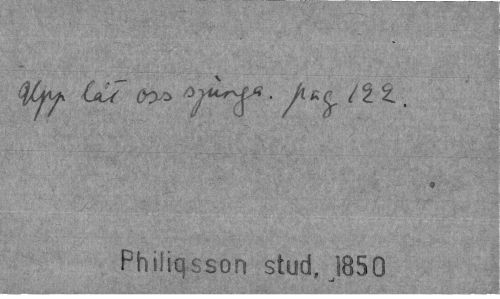 Upp låt oss sjunga. pag 122.
Philiqsson stud, 1850